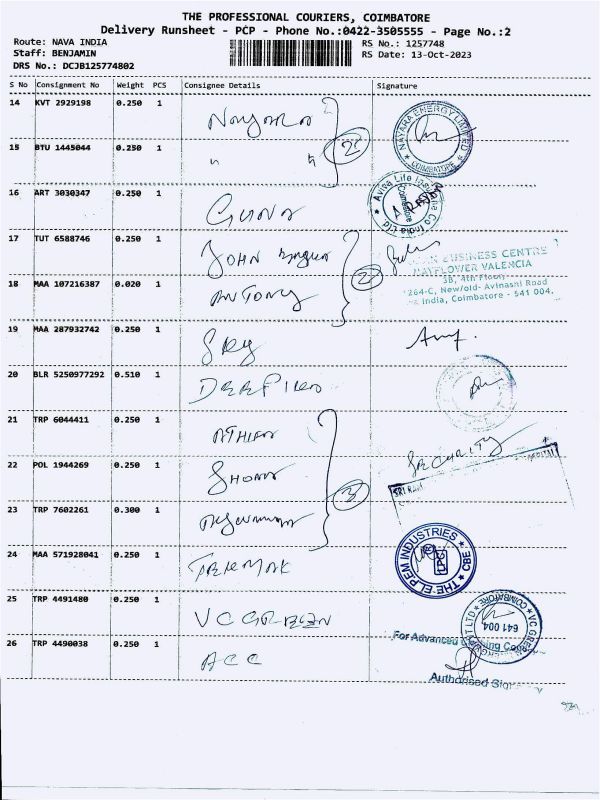 THE PROFESSIONAL COURIERS, COIMBATORE
Delivery Runsheet - PCP - Phone No.:0422-3505555 - Page No.:2
Route: NAVA INDIA
RS No.: 1257748
Staff: BENJAMIN
RS Date: 13-Oct-2023
DRS No.: DCJB125774802
S No Consignment No Weight PCS Consignee Details Signature
14 KVT 2929198 0.250 1 Nayara
NAYARA ENERGY LIMITED COIMBATORE
15 BTU 1445044 0.250 1 " " 2
16 ART 3030347 0.250 1 Guna
Aviva Life Insurance Co India Ltd Coimbatore
17 TUT 6588746 0.250 1 JOHN
BUSINESS CENTRE
MAYFLOWER VALENCIA
3B, 4th Floor
18 MAA 107216387 0.020 1 ANTONY 2
264-C, New/old- Avinashi Road
India, Coimbatore - 641 004.
19 MAA 287932742 0.250 1 SKY
20 BLR 5250977292 0.510 1
21 TRP 6044411 0.250 1
SECURITY
22 POL 1944269 0.250 1 3
SRI RAM
23 TRP 7602261 0.300 1
24 MAA 571928041 0.250 1
THE ELPEM INDUSTRIES CBE
25 TRP 4491480 0.250 1 VC GREEN
VC GREEN PVT LTD COIMBATORE 641 004
For Advanced
26 TRP 4490038 0.250 1 ACC
Authorised